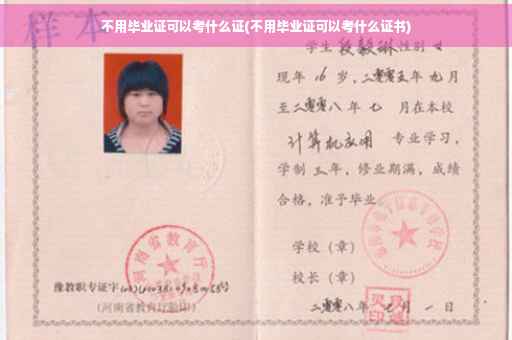 不用毕业证可以考什么证(不用毕业证可以考什么证书)
样本
学生 段毅琳 性别 女
现年 16 岁，二零零五年 九月
至二零零八年 七 月在本校
计算机应用 专业学习，
学制 三年，修业期满，成绩
合格，准予毕业
学校（章）
校长（章）
二零零八年 七 月 一 日
河南省教育厅
豫教职专证字
(河南省教育厅验印)